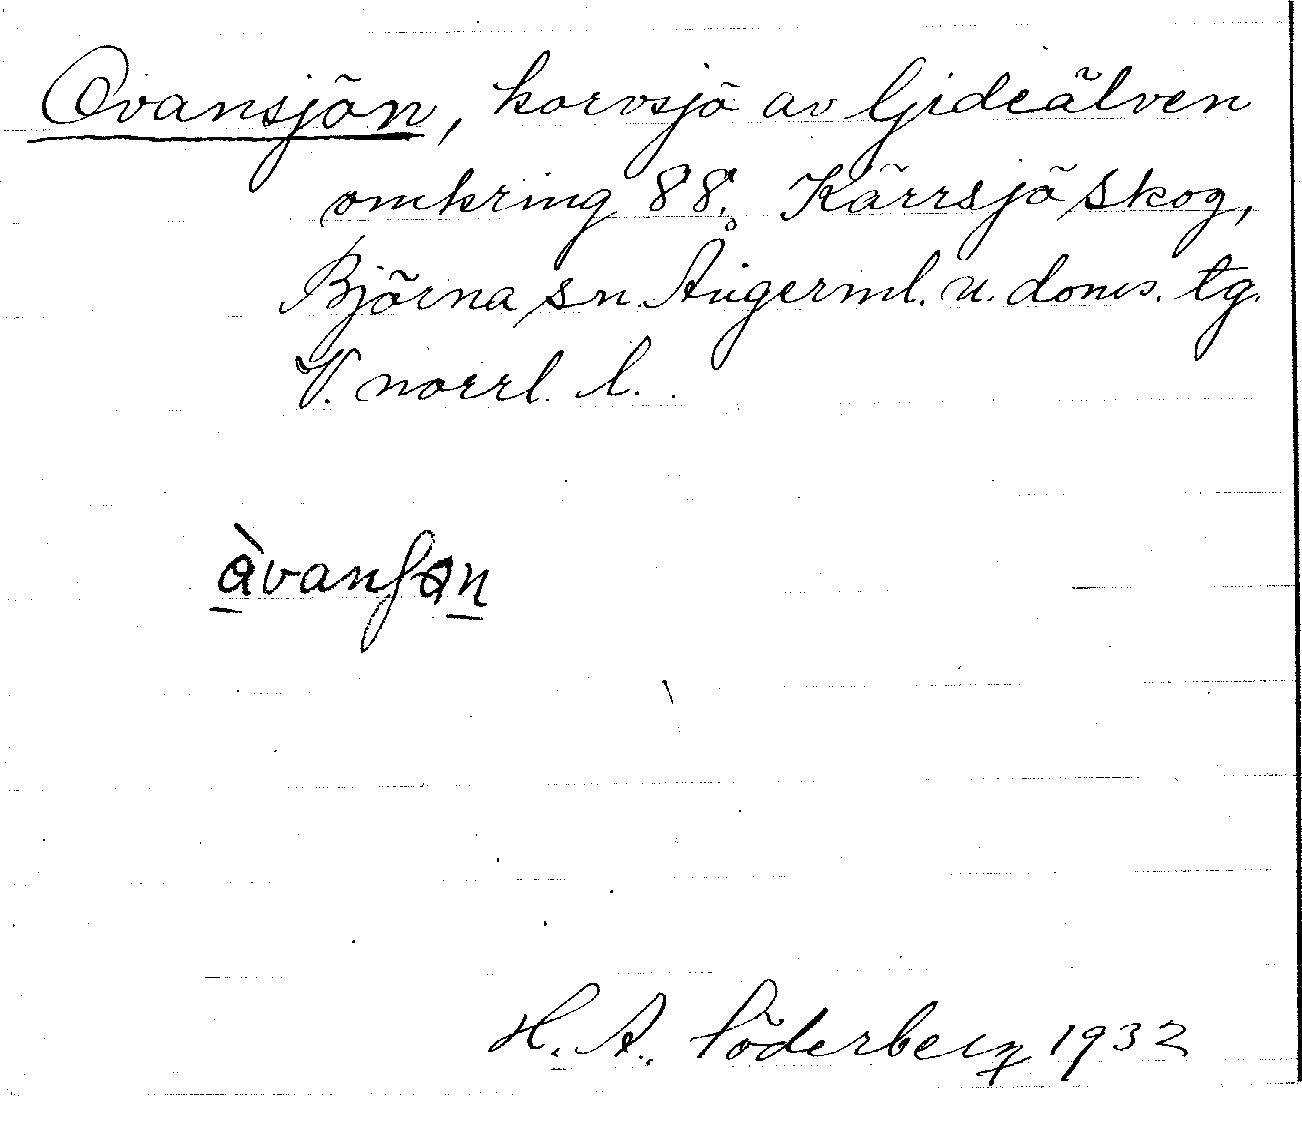 Ovansjön, korvsjö av Gideälven
omkring 88. Kärrsjö skog,
Björna sn Ångerml. n. doms. tg.
V. norrl. l.
åvanʃən
H. A. Söderberg 1932